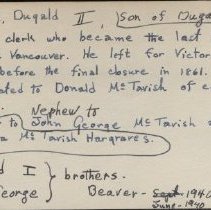 Dugald II, son of Duga
clerk who became the last
Vancouver. He left for Victor
before the final closure in 1861.
ated to Donald McTavish of e
Nephew to
to John George McTavish
a McTavish Hargraves.
d I } brothers.
George } Beaver - Sept 1940
June - 1940